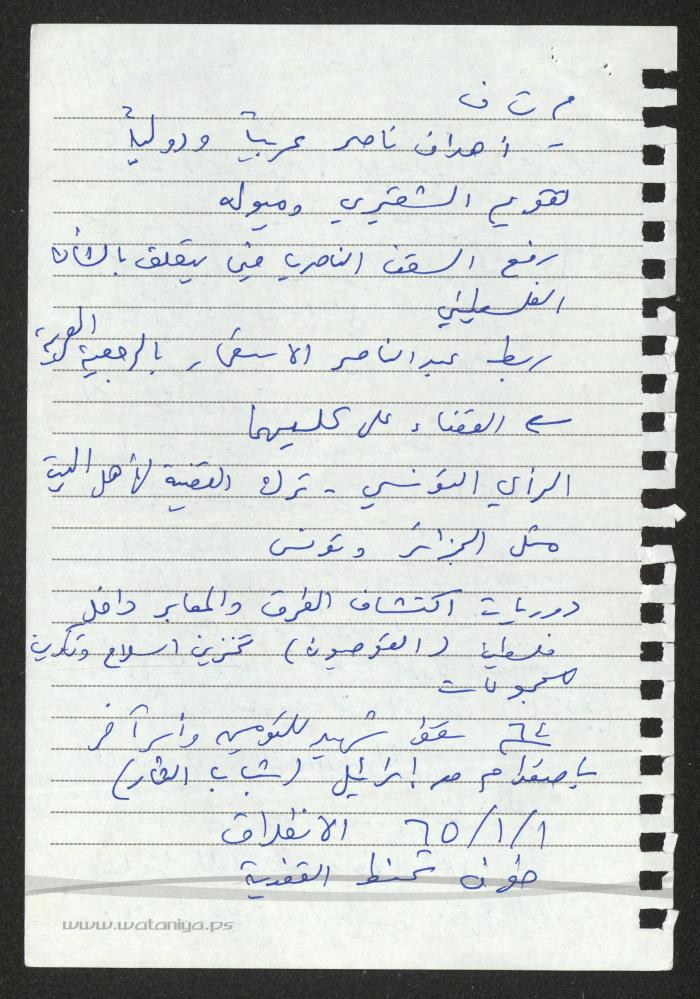 م ت ف
- أهداف ناصر عربياً ودولياً
تقويم الشقيري وميوله
رفع السقف الناصري فيما يتعلق بالشأن
الفلسطيني
ربط عبد الناصر الاستعمار بالرجعية العربية
القضاء على كليهما
الرأي التونسي - ترك القضية لأهل البيت
مثل الجزائر وتونس
دوريات اكتشاف الطرق والمعابر داخل
فلسطين () تخزين اسلاح وتكوين
مجموعات
٦٤ سقط شهيد للقوميين وأسر آخر
باصطدام مع إسرائيل (شباب الثأر)
٦٥/١/١ الانطلاق
خوف تحنط القضية
www.wataniya.ps